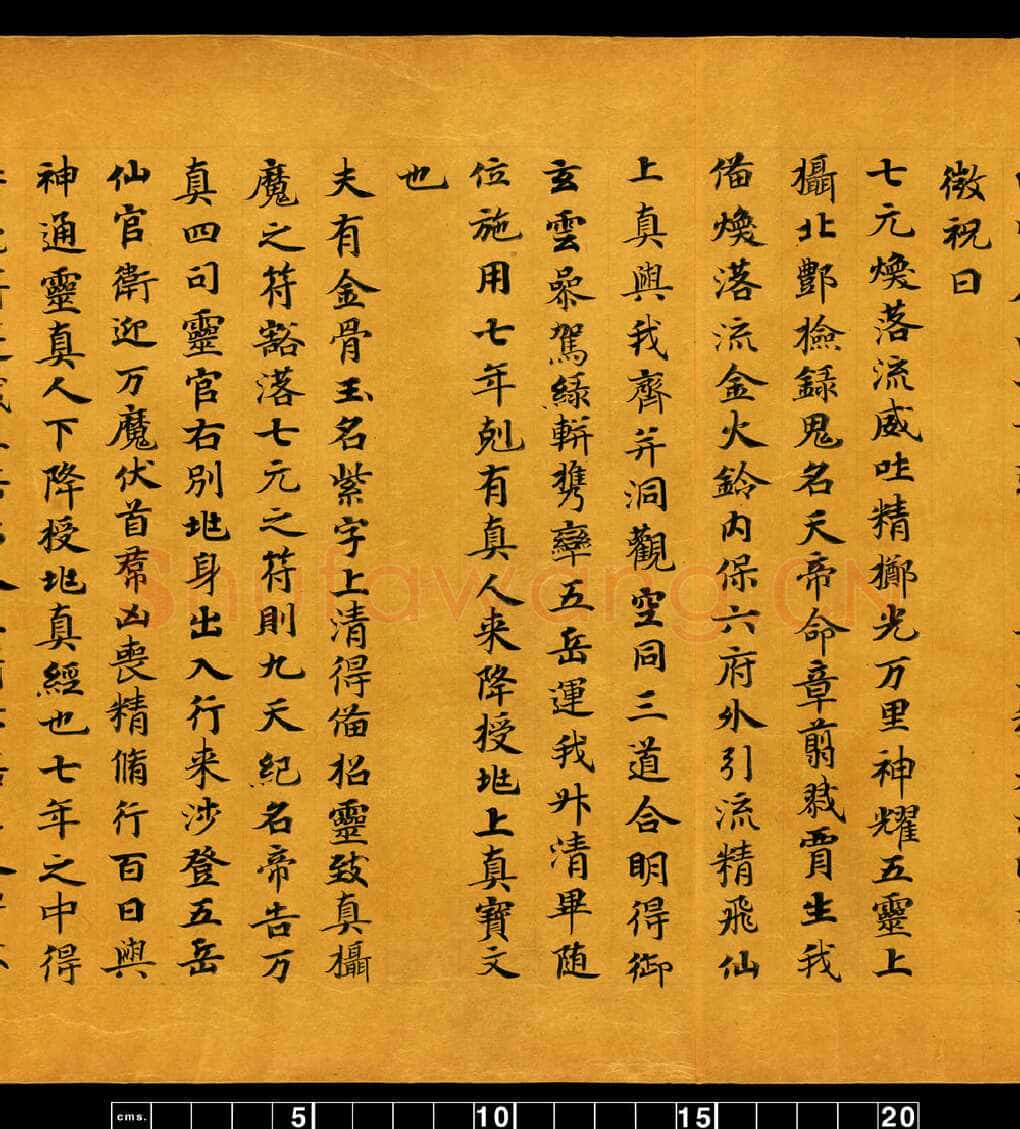 徴祝曰
七元煥落流威吐精擲光万里神耀五靈上
攝北酆撿録鬼名天帝命章翦戮賈生我
俻煥落流金火鈴內保六府外引流精飛仙
上真與我齊并洞觀空同三道合明得御
玄雲飛駕緑軿携轡五岳運我升清畢随
位施用七年剋有真人来降授兆上真寶文
也
夫有金骨玉名紫字上清得俻招靈致真攝
魔之符豁落七元之符則九天紀名帝告万
真四司靈官右別兆身出入行来涉登五岳
仙官衛迎万魔伏首群凶喪精脩行百日與
神通靈真人下降授兆真經也七年之中得
Shufawang.CN
cms. 5 10 15 20